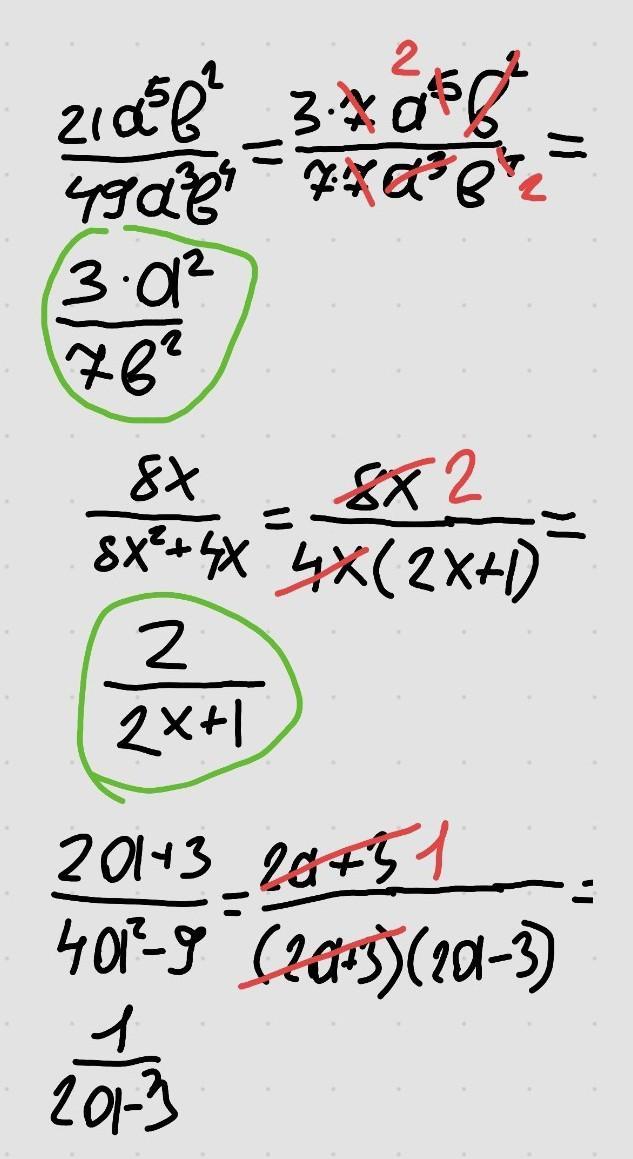 21a⁵b² / 49a³b⁴ = 3·7 a⁵ 2 b² / 7·7 a³ b⁴ 2 =
3·a² / 7b²
8x / 8x²+4x = 8x 2 / 4x(2x+1) =
2 / 2x+1
2a+3 / 4a²-9 = 2a+3 1 / (2a+3)(2a-3) =
1 / 2a-3